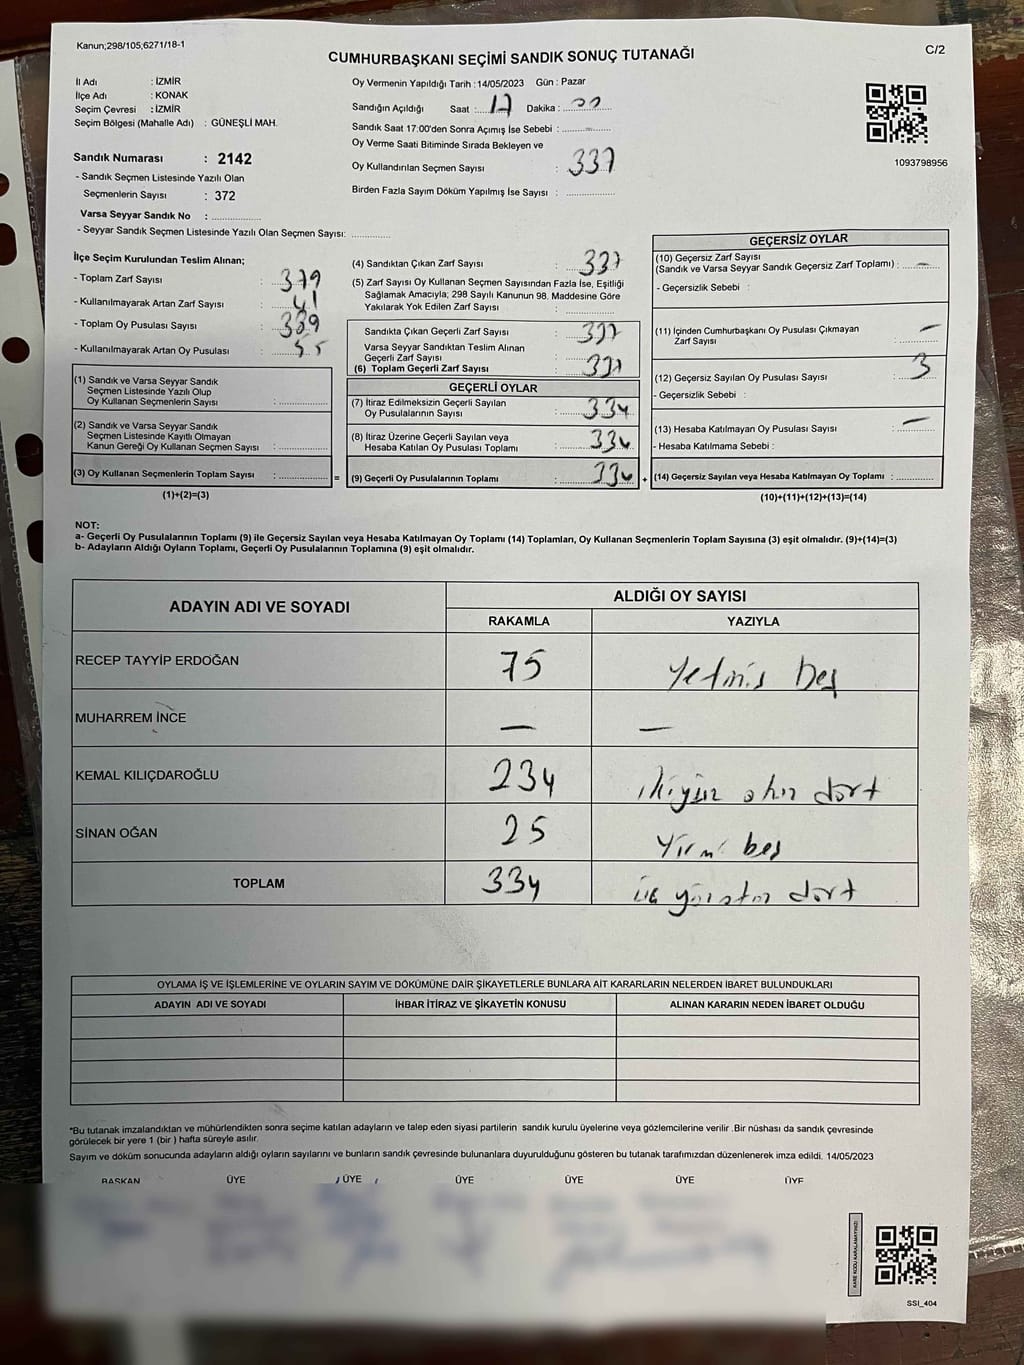 Kanun;298/105,6271/18-1
C/2
CUMHURBAŞKANI SEÇİMİ SANDIK SONUÇ TUTANAĞI
İl Adı : İZMİR
İlçe Adı : KONAK
Seçim Çevresi : İZMİR
Seçim Bölgesi (Mahalle Adı) : GÜNEŞLİ MAH.
Sandık Numarası : 2142
- Sandık Seçmen Listesinde Yazılı Olan
Seçmenlerin Sayısı : 372
Varsa Seyyar Sandık No : ..............
- Seyyar Sandık Seçmen Listesinde Yazılı Olan Seçmen Sayısı: ............
Oy Vermenin Yapıldığı Tarih :14/05/2023 Gün : Pazar
Sandığın Açıldığı Saat : 17 Dakika :
Sandık Saat 17:00'den Sonra Açımış İse Sebebi :
Oy Verme Saati Bitiminde Sırada Bekleyen ve
Oy Kullandırılan Seçmen Sayısı : 337
Birden Fazla Sayım Döküm Yapılmış İse Sayısı : ..............
1093798956
İlçe Seçim Kurulundan Teslim Alınan;
- Toplam Zarf Sayısı : 379
- Kullanılmayarak Artan Zarf Sayısı : 41
- Toplam Oy Pusulası Sayısı : 389
- Kullanılmayarak Artan Oy Pusulası : 55
(1) Sandık ve Varsa Seyyar Sandık
Seçmen Listesinde Yazılı Olup
Oy Kullanan Seçmenlerin Sayısı : ..............
(2) Sandık ve Varsa Seyyar Sandık
Seçmen Listesinde Kayıtlı Olmayan
Kanun Gereği Oy Kullanan Seçmen Sayısı : ..............
(3) Oy Kullanan Seçmenlerin Toplam Sayısı : .............. =
(1)+(2)=(3)
(4) Sandıktan Çıkan Zarf Sayısı : 337
(5) Zarf Sayısı Oy Kullanan Seçmen Sayısından Fazla İse, Eşitliği
Sağlamak Amacıyla; 298 Sayılı Kanunun 98. Maddesine Göre
Yakılarak Yok Edilen Zarf Sayısı : ..............
Sandıkta Çıkan Geçerli Zarf Sayısı : 337
Varsa Seyyar Sandıktan Teslim Alınan
Geçerli Zarf Sayısı : ..............
(6) Toplam Geçerli Zarf Sayısı : 337
GEÇERLİ OYLAR
(7) İtiraz Edilmeksizin Geçerli Sayılan
Oy Pusulalarının Sayısı : 334
(8) İtiraz Üzerine Geçerli Sayılan veya
Hesaba Katılan Oy Pusulası Toplamı : 334
(9) Geçerli Oy Pusulalarının Toplamı : 334 +
GEÇERSİZ OYLAR
(10) Geçersiz Zarf Sayısı
(Sandık ve Varsa Seyyar Sandık Geçersiz Zarf Toplamı) : —
- Geçersizlik Sebebi :
(11) İçinden Cumhurbaşkanı Oy Pusulası Çıkmayan —
Zarf Sayısı : ..............
(12) Geçersiz Sayılan Oy Pusulası Sayısı : 3
- Geçersizlik Sebebi :
(13) Hesaba Katılmayan Oy Pusulası Sayısı : —
- Hesaba Katılmama Sebebi :
(14) Geçersiz Sayılan veya Hesaba Katılmayan Oy Toplamı : ............
(10)+(11)+(12)+(13)=(14)
NOT:
a- Geçerli Oy Pusulalarının Toplamı (9) ile Geçersiz Sayılan veya Hesaba Katılmayan Oy Toplamı (14) Toplamları, Oy Kullanan Seçmenlerin Toplam Sayısına (3) eşit olmalıdır. (9)+(14)=(3)
b- Adayların Aldığı Oyların Toplamı, Geçerli Oy Pusulalarının Toplamına (9) eşit olmalıdır.
ADAYIN ADI VE SOYADI
ALDIĞI OY SAYISI
RAKAMLA YAZIYLA
RECEP TAYYİP ERDOĞAN 75 Yetmiş beş
MUHARREM İNCE — —
KEMAL KILIÇDAROĞLU 234 ikiyüz otuz dört
SİNAN OĞAN 25 Yirmi beş
TOPLAM 334 üç yüzotuz dört
OYLAMA İŞ VE İŞLEMLERİNE VE OYLARIN SAYIM VE DÖKÜMÜNE DAİR ŞİKAYETLERLE BUNLARA AİT KARARLARIN NELERDEN İBARET BULUNDUKLARI
ADAYIN ADI VE SOYADI İHBAR İTİRAZ VE ŞİKAYETİN KONUSU ALINAN KARARIN NEDEN İBARET OLDUĞU
*Bu tutanak imzalandıktan ve mühürlendikten sonra seçime katılan adayların ve talep eden siyasi partilerin sandık kurulu üyelerine veya gözlemcilerine verilir .Bir nüshası da sandık çevresinde
görülecek bir yere 1 (bir ) hafta süreyle asılır.
Sayım ve döküm sonucunda adayların aldığı oyların sayılarını ve bunların sandık çevresinde bulunanlara duyurulduğunu gösteren bu tutanak tarafımızdan düzenlenerek imza edildi. 14/05/2023
BAŞKAN ÜYE ÜYE ÜYE ÜYE ÜYE ÜYE
KARE KODU KARALAMAYINIZ!
SSI_404